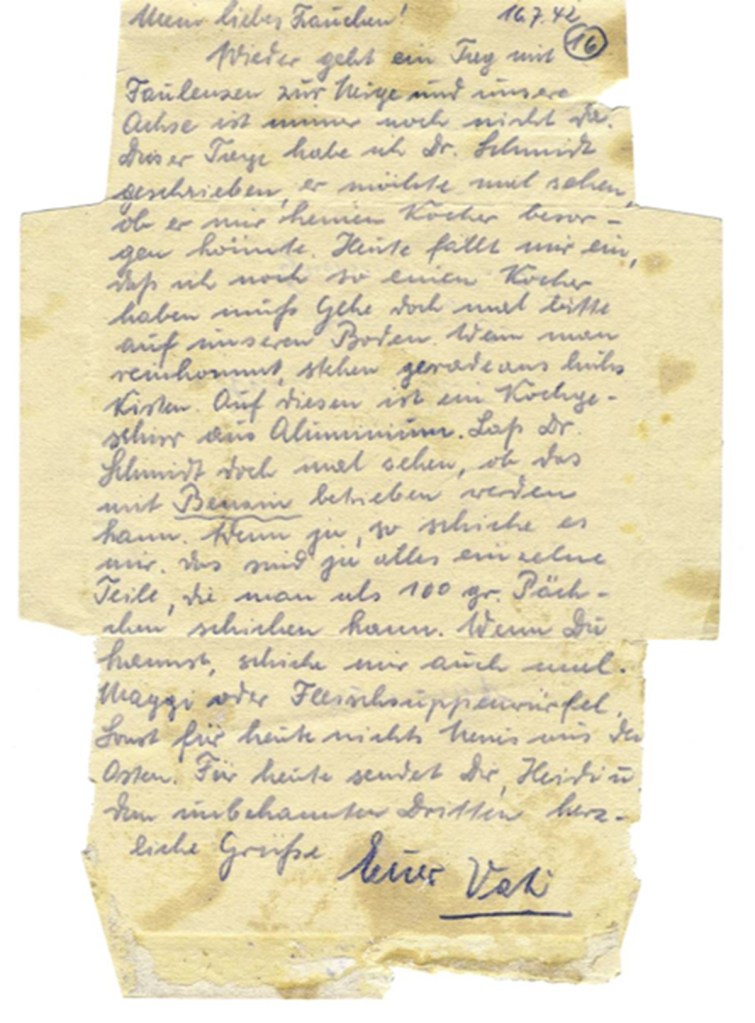 Mein liebes Frauchen! 16.7.42
16
Wieder geht ein Tag mit
Faulenzen zur Neige und unsere
Achse ist immer noch nicht da.
Dieser Tage habe ich Dr. Schmidt
geschrieben, er möchte mal sehen,
ob er mir keinen Kocher besor-
gen könnte. Heute fällt mir ein,
daß ich noch so einen Kocher
haben muß. Gehe doch mal bitte
auf unseren Boden. Wenn man
reinkommt, stehen geradeaus links
Kisten. Auf diesen ist ein Kochge-
schirr aus Aluminium. Laß Dr.
Schmidt doch mal sehen, ob das
mit Benzin betrieben werden
kann. Wenn ja, so schicke es
mir. Das sind ja alles einzelne
Teile, die man als 100 gr. Päck-
chen schicken kann. Wenn Du
kannst, schicke mir auch mal
Maggi oder Fleischsuppenwürfel.
Sonst für heute nichts Neues aus dem
Osten. Für heute sendet Dir, Heidi u.
dem unbekannten Dritten herz-
liche Grüße Euer Vati